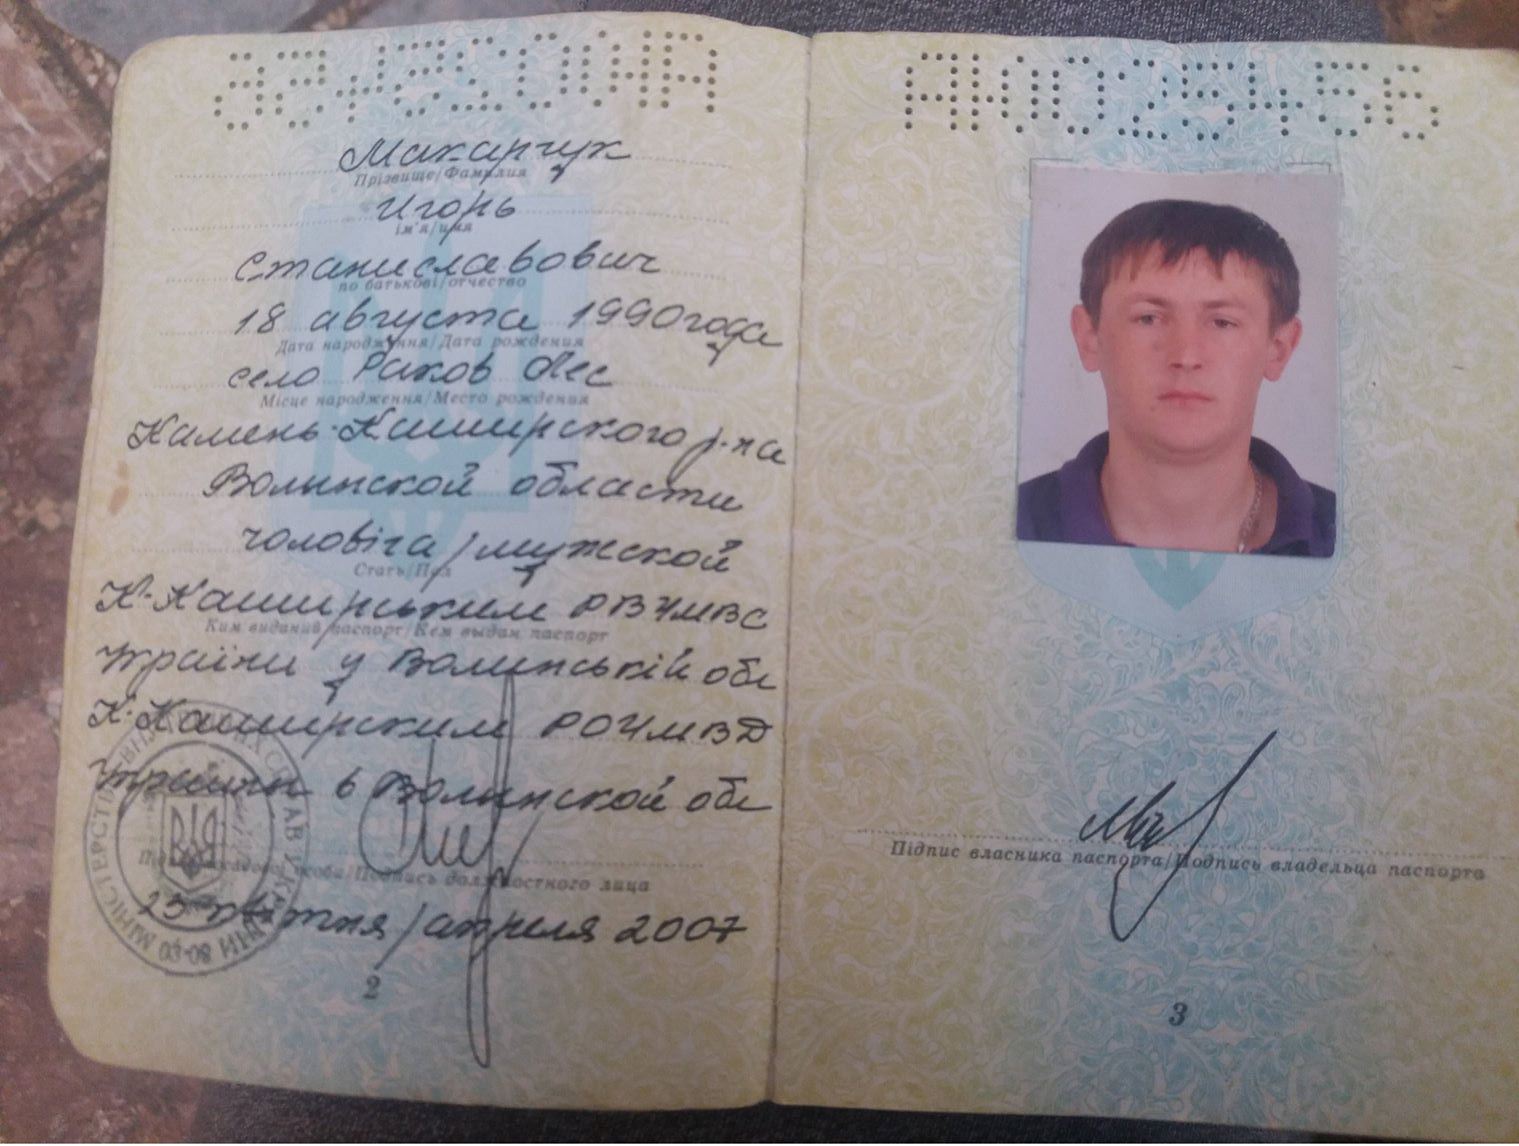 Макарчук
Прізвище/Фамилия
Игорь
ім'я/имя
Станиславович
по батькові/отчество
18 августа 1990 года
Дата народження/Дата рождения
село Раков Лес
Місце народження/Место рождения
Камень-Каширского р-на
Волынской области
чоловіча/мужской
Стать/Пол
К-Каширським РВУМВС
Ким виданий паспорт/Кем выдан паспорт
України у Волинській обл
К-Каширским РОУМВД
Украины в Волынской обл
особи/Подпись должностного лица
квітня/апреля 2007
2
Підпис власника паспорта/Подпись владельца паспорта
3